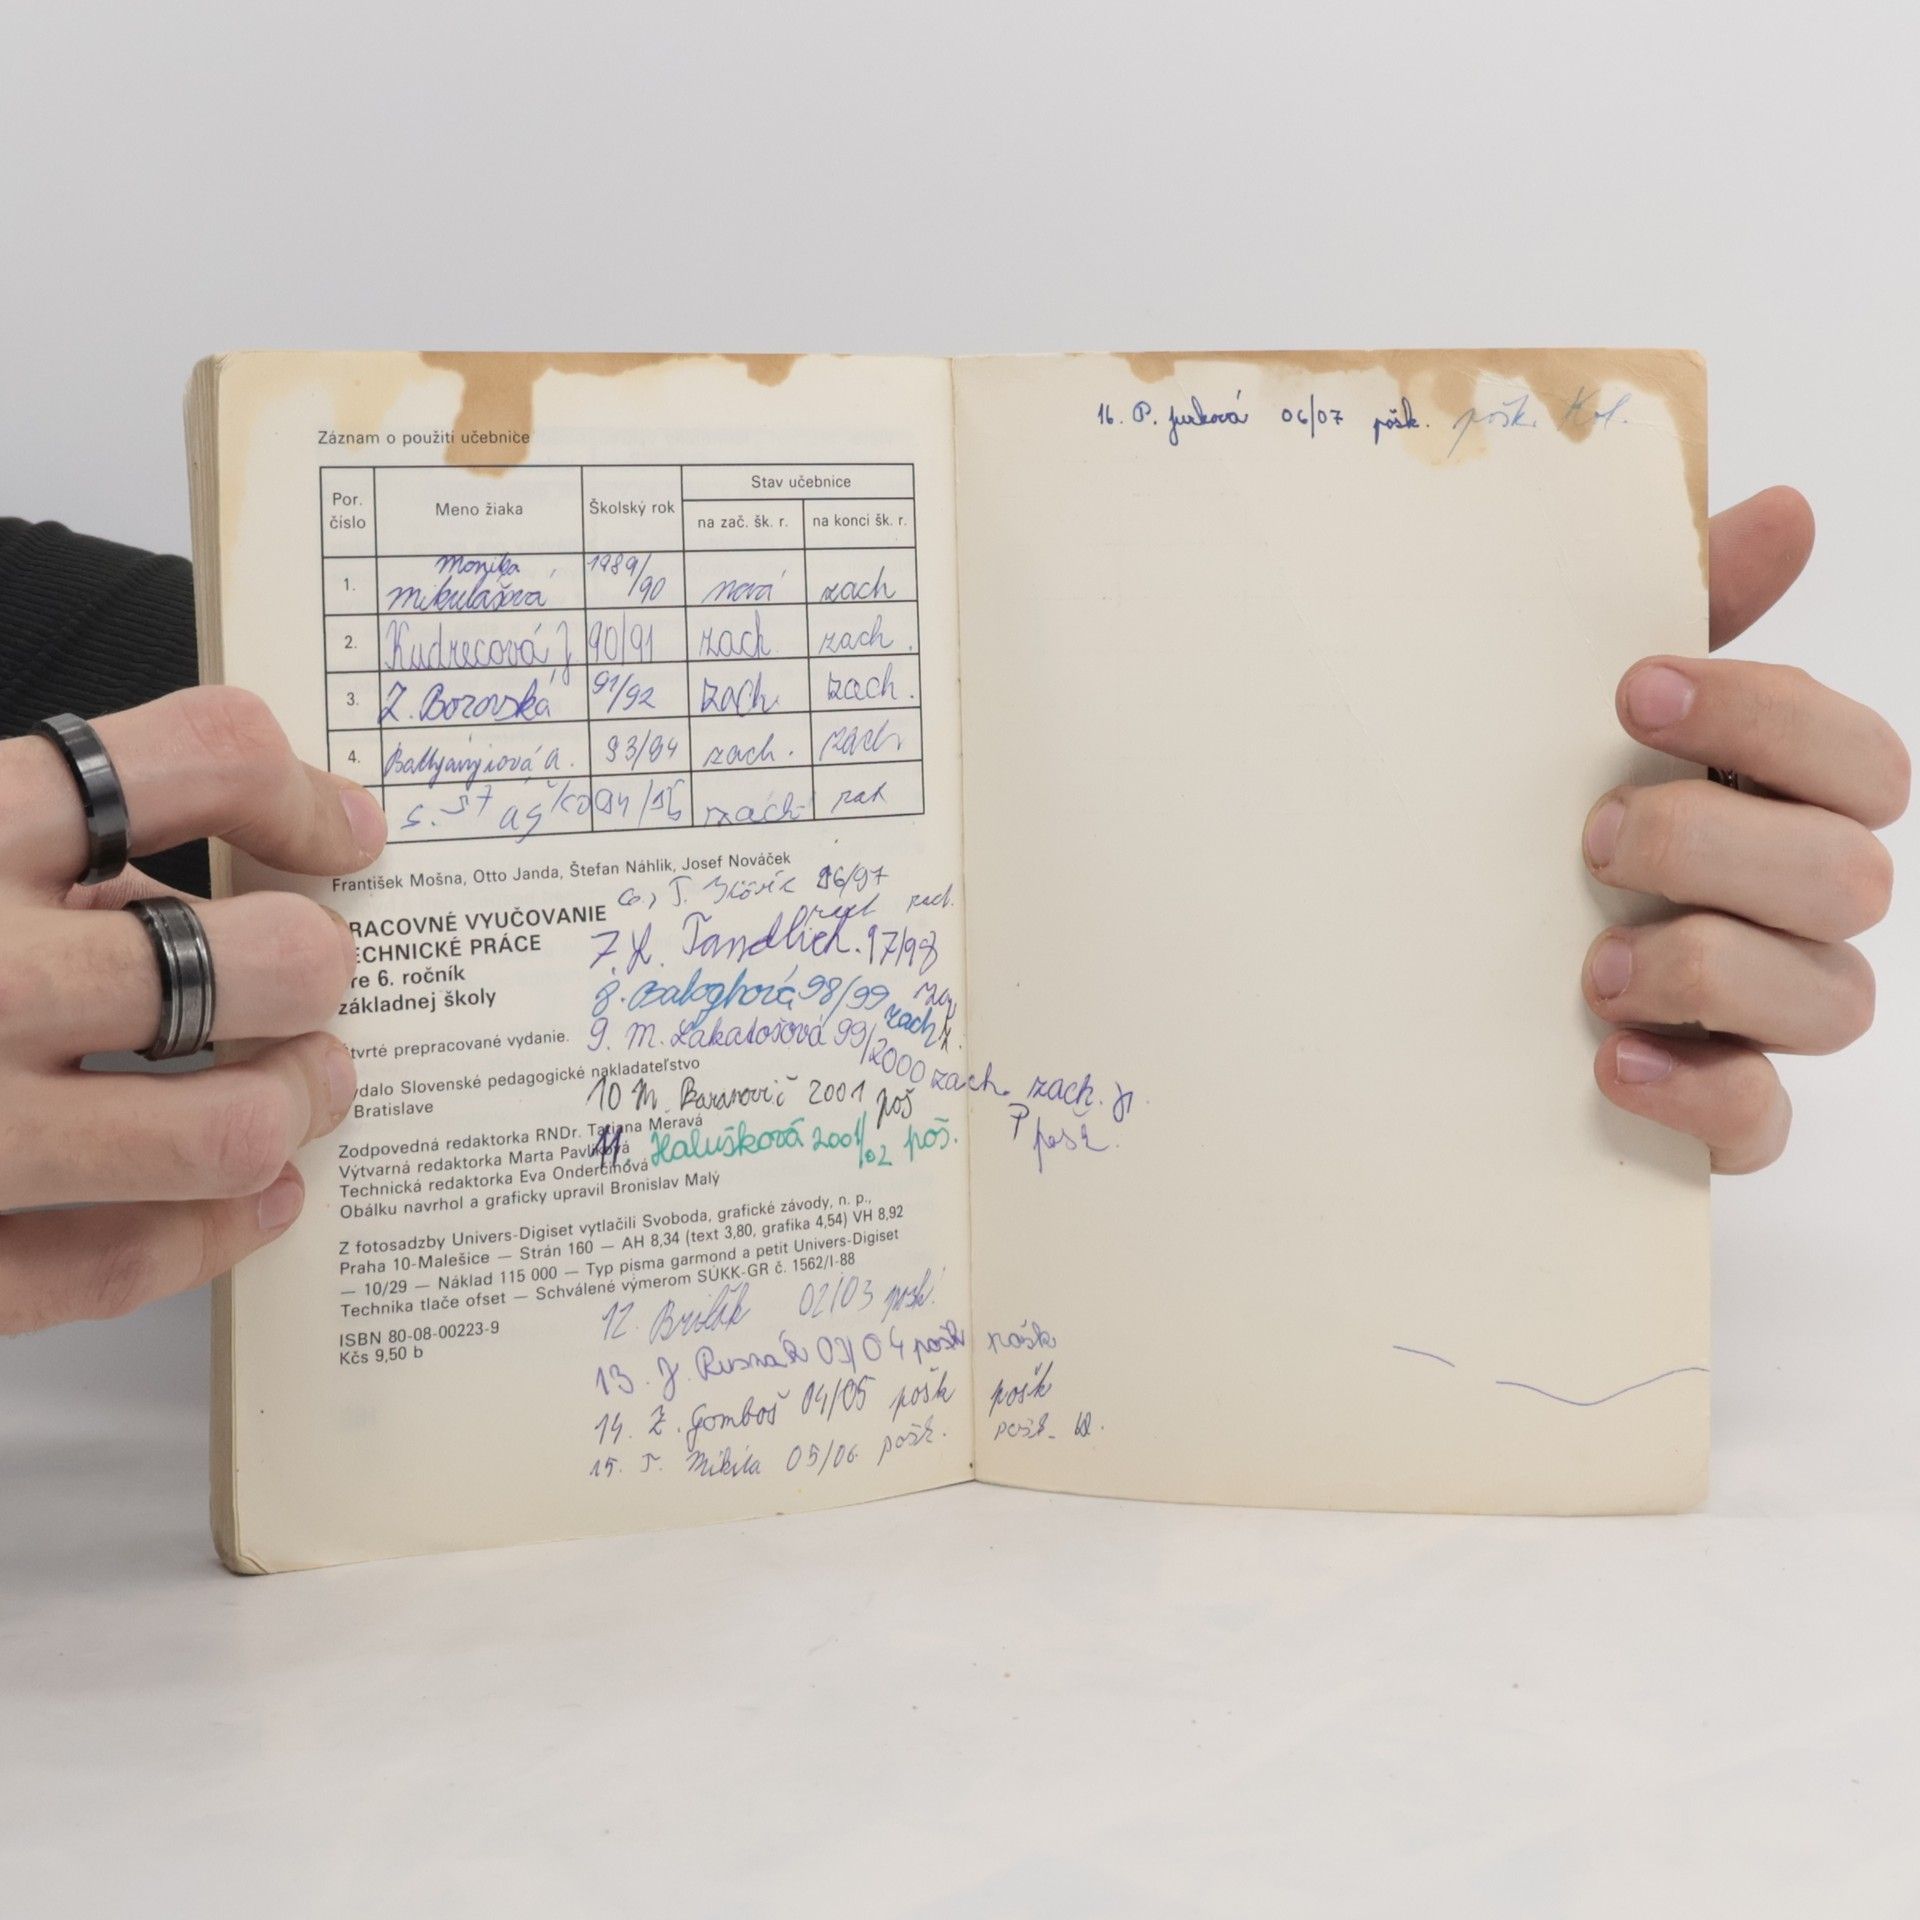 Záznam o použití učebnice
Por. číslo Meno žiaka Školský rok Stav učebnice
na zač. šk. r. na konci šk. r.
1. Monika Mikulášová 1989/90 nová zach
2. Kudrecová J. 90/91 zach. zach.
3. Z. Borovská 91/92 zach. zach.
4. 93/94 zach. zach.
94/95 zach
František Mošna, Otto Janda, Štefan Náhlik, Josef Nováček
96/97
zach.
RACOVNÉ VYUČOVANIE
ECHNICKÉ PRÁCE
re 6. ročník
základnej školy
7. L. Tandlich. 97/98
8. Baloghová 98/99 zach
tvrté prepracované vydanie.
9. M. Lakatošová 99/2000 zach. zach.
ydalo Slovenské pedagogické nakladateľstvo
Bratislave
10 M. Baranovič 2001 poš
Zodpovedná redaktorka RNDr. Tatjana Meravá
Výtvarná redaktorka Marta Pavlíková
11. Halušková 2001/02 poš. pošk.
Technická redaktorka Eva Onderčinová
Obálku navrhol a graficky upravil Bronislav Malý
Z fotosadzby Univers-Digiset vytlačili Svoboda, grafické závody, n. p.,
Praha 10-Malešice — Strán 160 — AH 8,34 (text 3,80, grafika 4,54) VH 8,92
— 10/29 — Náklad 115 000 — Typ písma garmond a petit Univers-Digiset
Technika tlače ofset — Schválené výmerom SÚKK-GR č. 1562/I-88
ISBN 80-08-00223-9
Kčs 9,50 b
12. 02/03 pošk.
13. J. Rusnák 03/04 pošk pošk
14. Z. Gomboš 04/05 pošk pošk
15. T. Mikita 05/06 pošk. pošk.
16. P. Jurková 06/07 pošk. pošk. Kol.